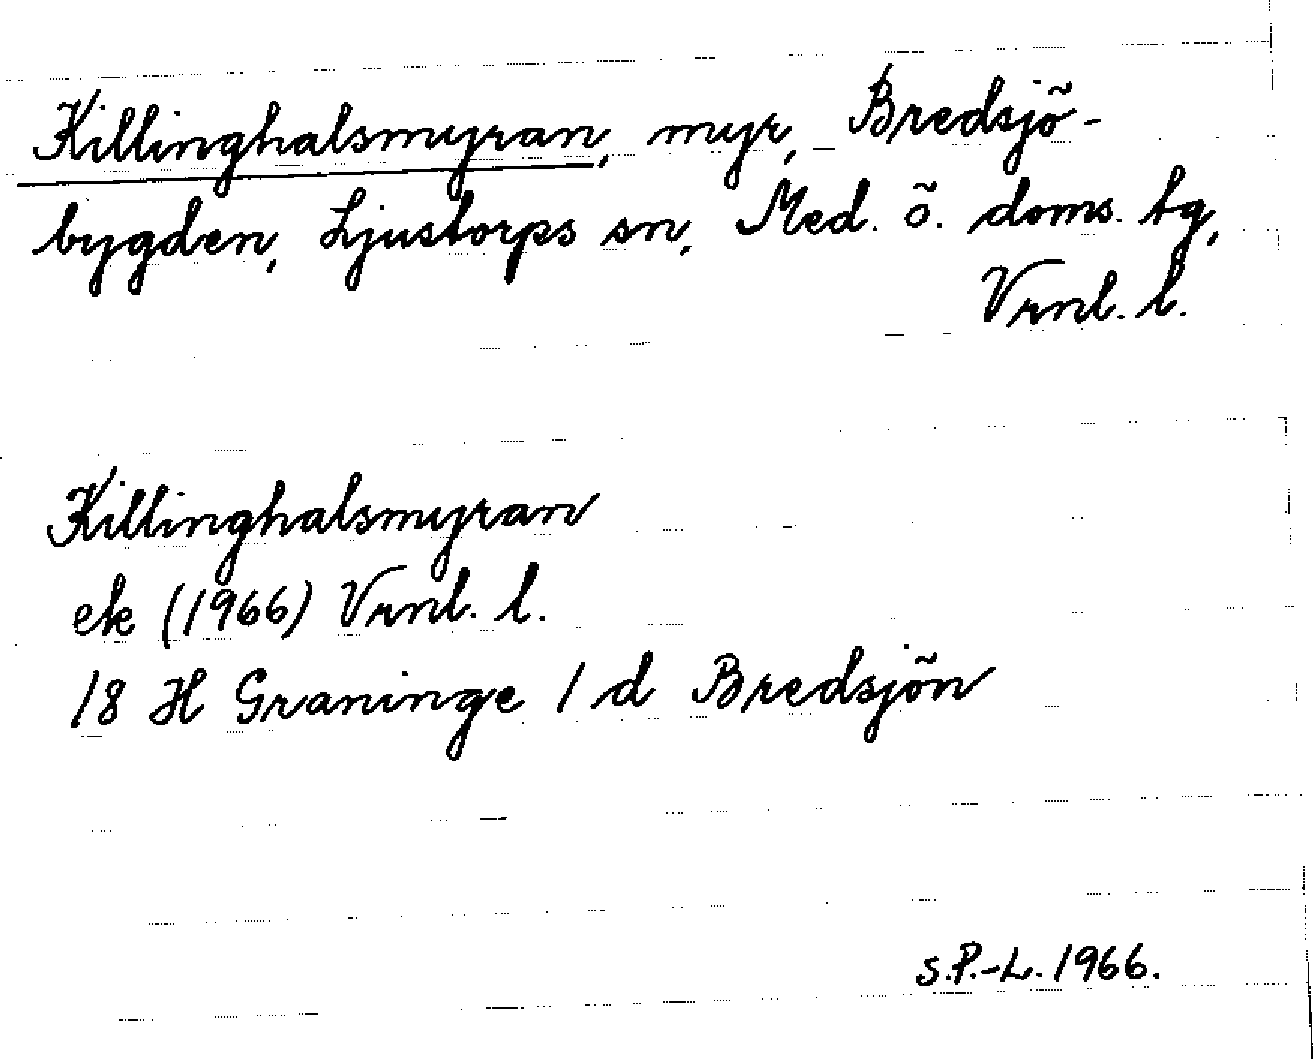 Killinghalsmyran, myr, Bredsjö-
bygden, Ljustorps sn, Med. ö. doms. tg,
Vrnl. l.
Killinghalsmyran
ek (1966) Vrnl. l.
18 H Graninge 1 d Bredsjön
S.P.-L. 1966.